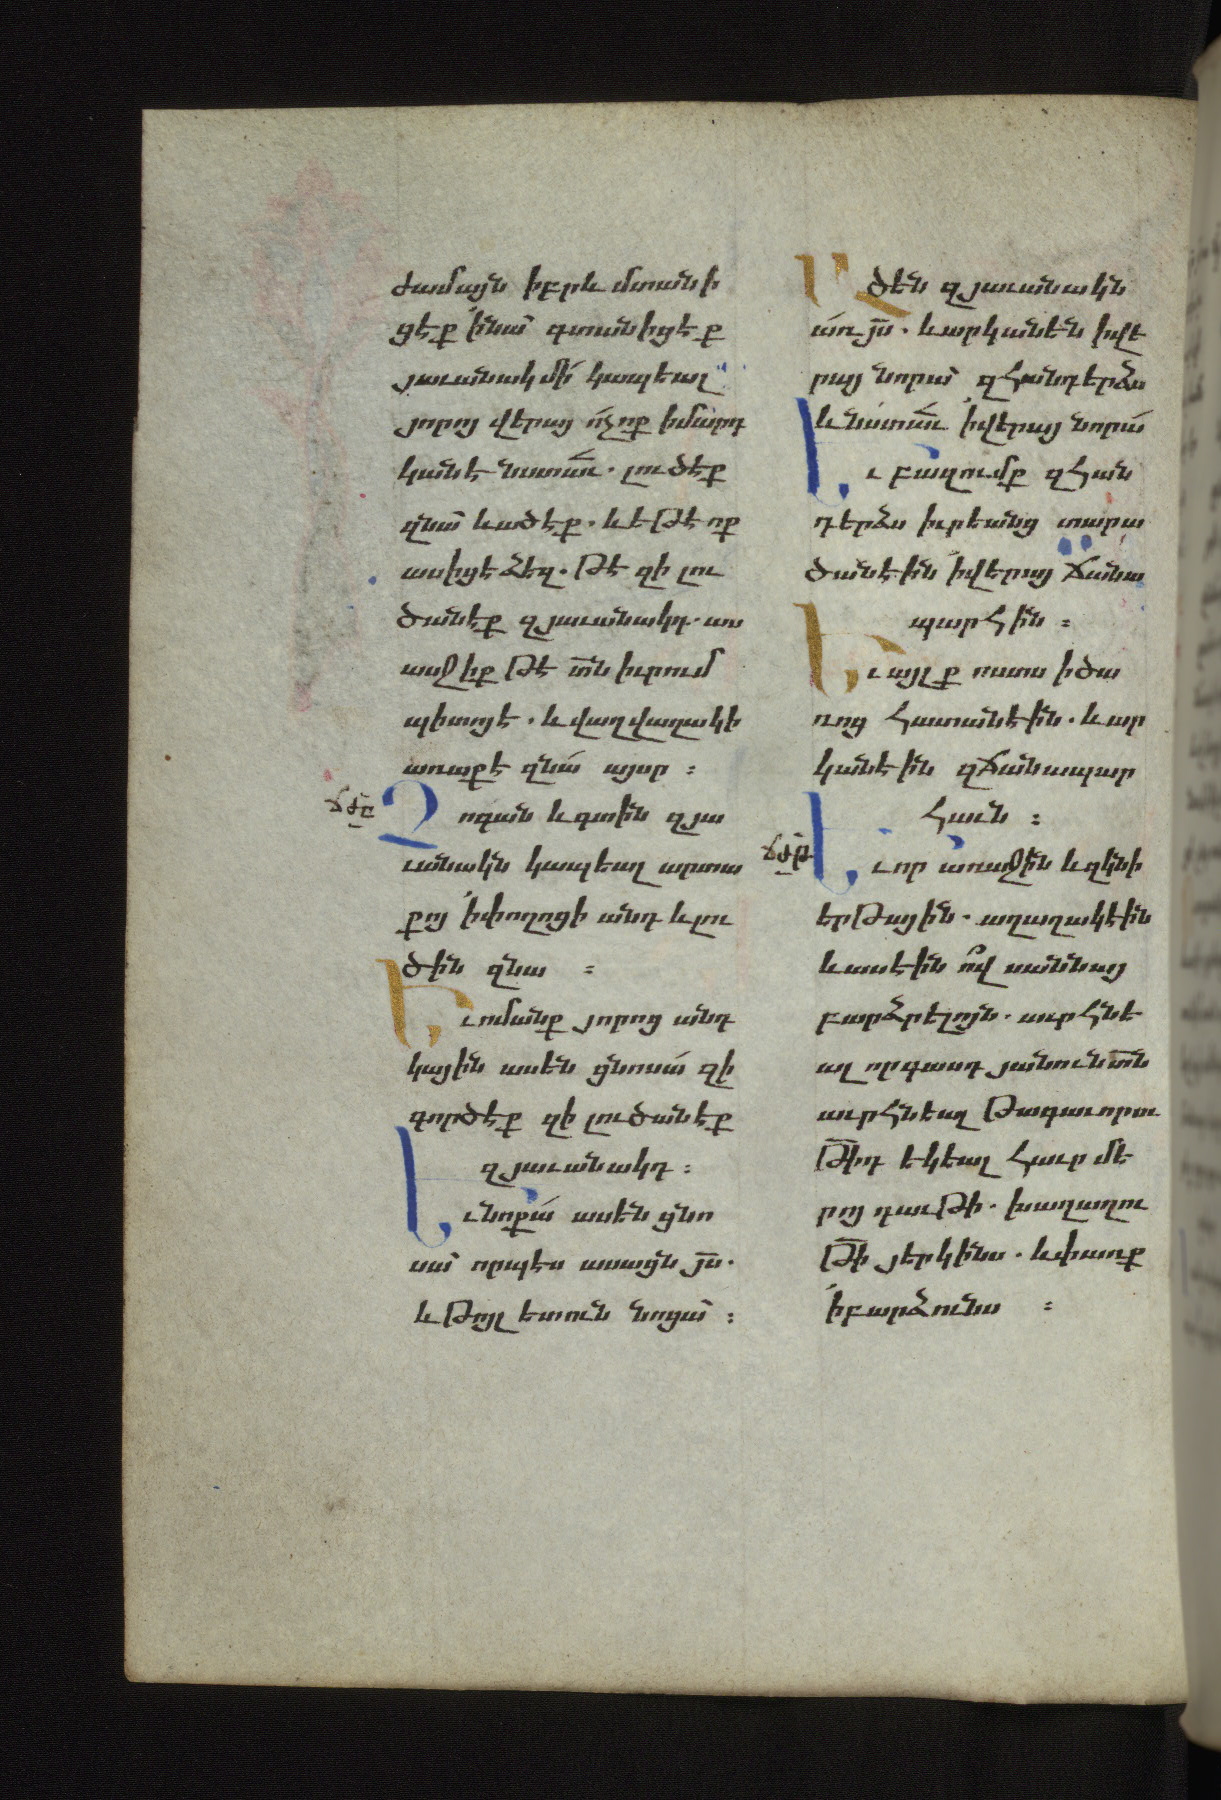 ժամայն իբրև մտանի
ցէք ՛ի նա՝ գտանիցէք
յաւանակ մի՛ կապեալ
յորոյ վերայ ո՛չ ոք ի մարդ
կանէ նստաւ. լուծէք
զնա՝ և ածէք. և եթէ ոք
ասիցէ ձեզ. թէ զի լու
ծանէք զյաւանակդ. աս
ասջիք թէ տ̅ն իւրում
պիտոյ է. և վաղվաղակի
առաքէ զնա՛ այսր ։
ճժը
Չոգան և գտին զյա
ւանակն կապեալ արտա
քոյ ՛ի փողոցի անդ և լու
ծին զնա ։
Եւ ոմանք յորոց անդ
կային ասեն ցնոսա՛ զի
գործէք զի լուծանէք
զյաւանակդ ։
Եւ նոքա՛ ասեն ցնո
սա՝ որպէս ասացն յ̅ս.
և թոյլ ետուն նոցա՝ ։
Ածեն զյաւանակն
առ յ̅ս. և արկանեն ի վե
րայ նորա՝ զհանդերձս
և նստաւ ՛ի վերայ նորա՛
Եւ բազումք զհան
դերձս իւրեանց տարա
ծանէին ՛ի վերայ ճանա
պարհին ։
Եւ այլք ոստս ի ծա
ռոց հատանէին. և ար
կանէին զճանապար
հաւն ։
ճժթ
Եւ որ առաջին և զկնի
երթային. աղաղակէին
և ասէին ո՜վ սաննայ
բարձրելոյն. աւրհնե
ալ որ գասդ յանուն տ̅ն
աւրհնեալ թագաւորու
թի̅դ եկեալ հաւր մե
րոյ դաւթի. խաղաղու
թի̅ յերկինս. և փառք
՛ի բարձունս ։